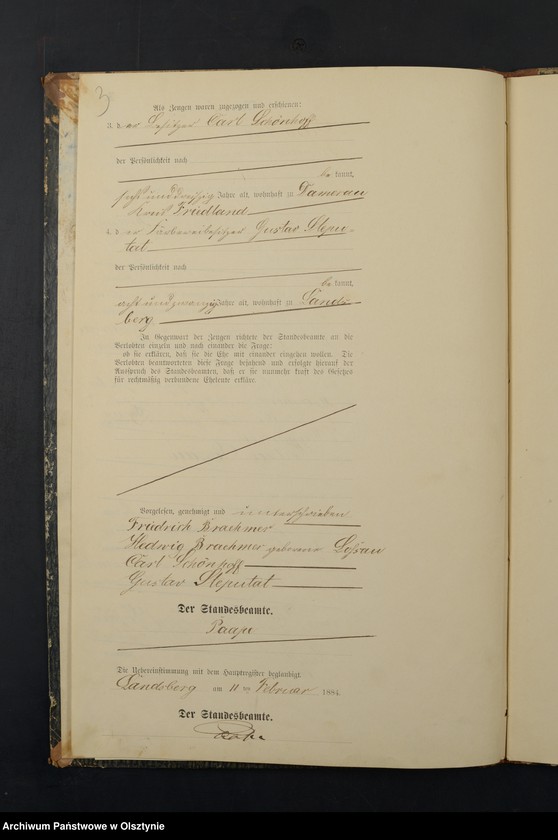 3
Als Zeugen waren zugezogen und erschienen:
3. der Besitzer Carl Schönhoff
der Persönlichkeit nach
be kannt,
sechs und dreißig Jahre alt, wohnhaft zu Damerau
Kreis Friedland
4. der Färbereibesitzer Gustav Steput-
tat
der Persönlichkeit nach
be kannt,
acht und zwanzig Jahre alt, wohnhaft zu Lands-
berg
In Gegenwart der Zeugen richtete der Standesbeamte an die
Verlobten einzeln und nach einander die Frage:
ob sie erklären, daß sie die Ehe mit einander eingehen wollen. Die
Verlobten beantworteten diese Frage bejahend und erfolgte hierauf der
Ausspruch des Standesbeamten, daß er sie nunmehr kraft des Gesetzes
für rechtmäßig verbundene Eheleute erkläre.
Vorgelesen, genehmigt und unterschrieben
Friedrich Brachmer
Hedwig Brachmer geborene
Carl Schönhoff
Gustav Steputat
Der Standesbeamte.
Paape
Die Uebereinstimmung mit dem Hauptregister beglaubigt.
Landsberg am 11 ten Februar 1884.
Der Standesbeamte.
Archiwum Państwowe w Olsztynie